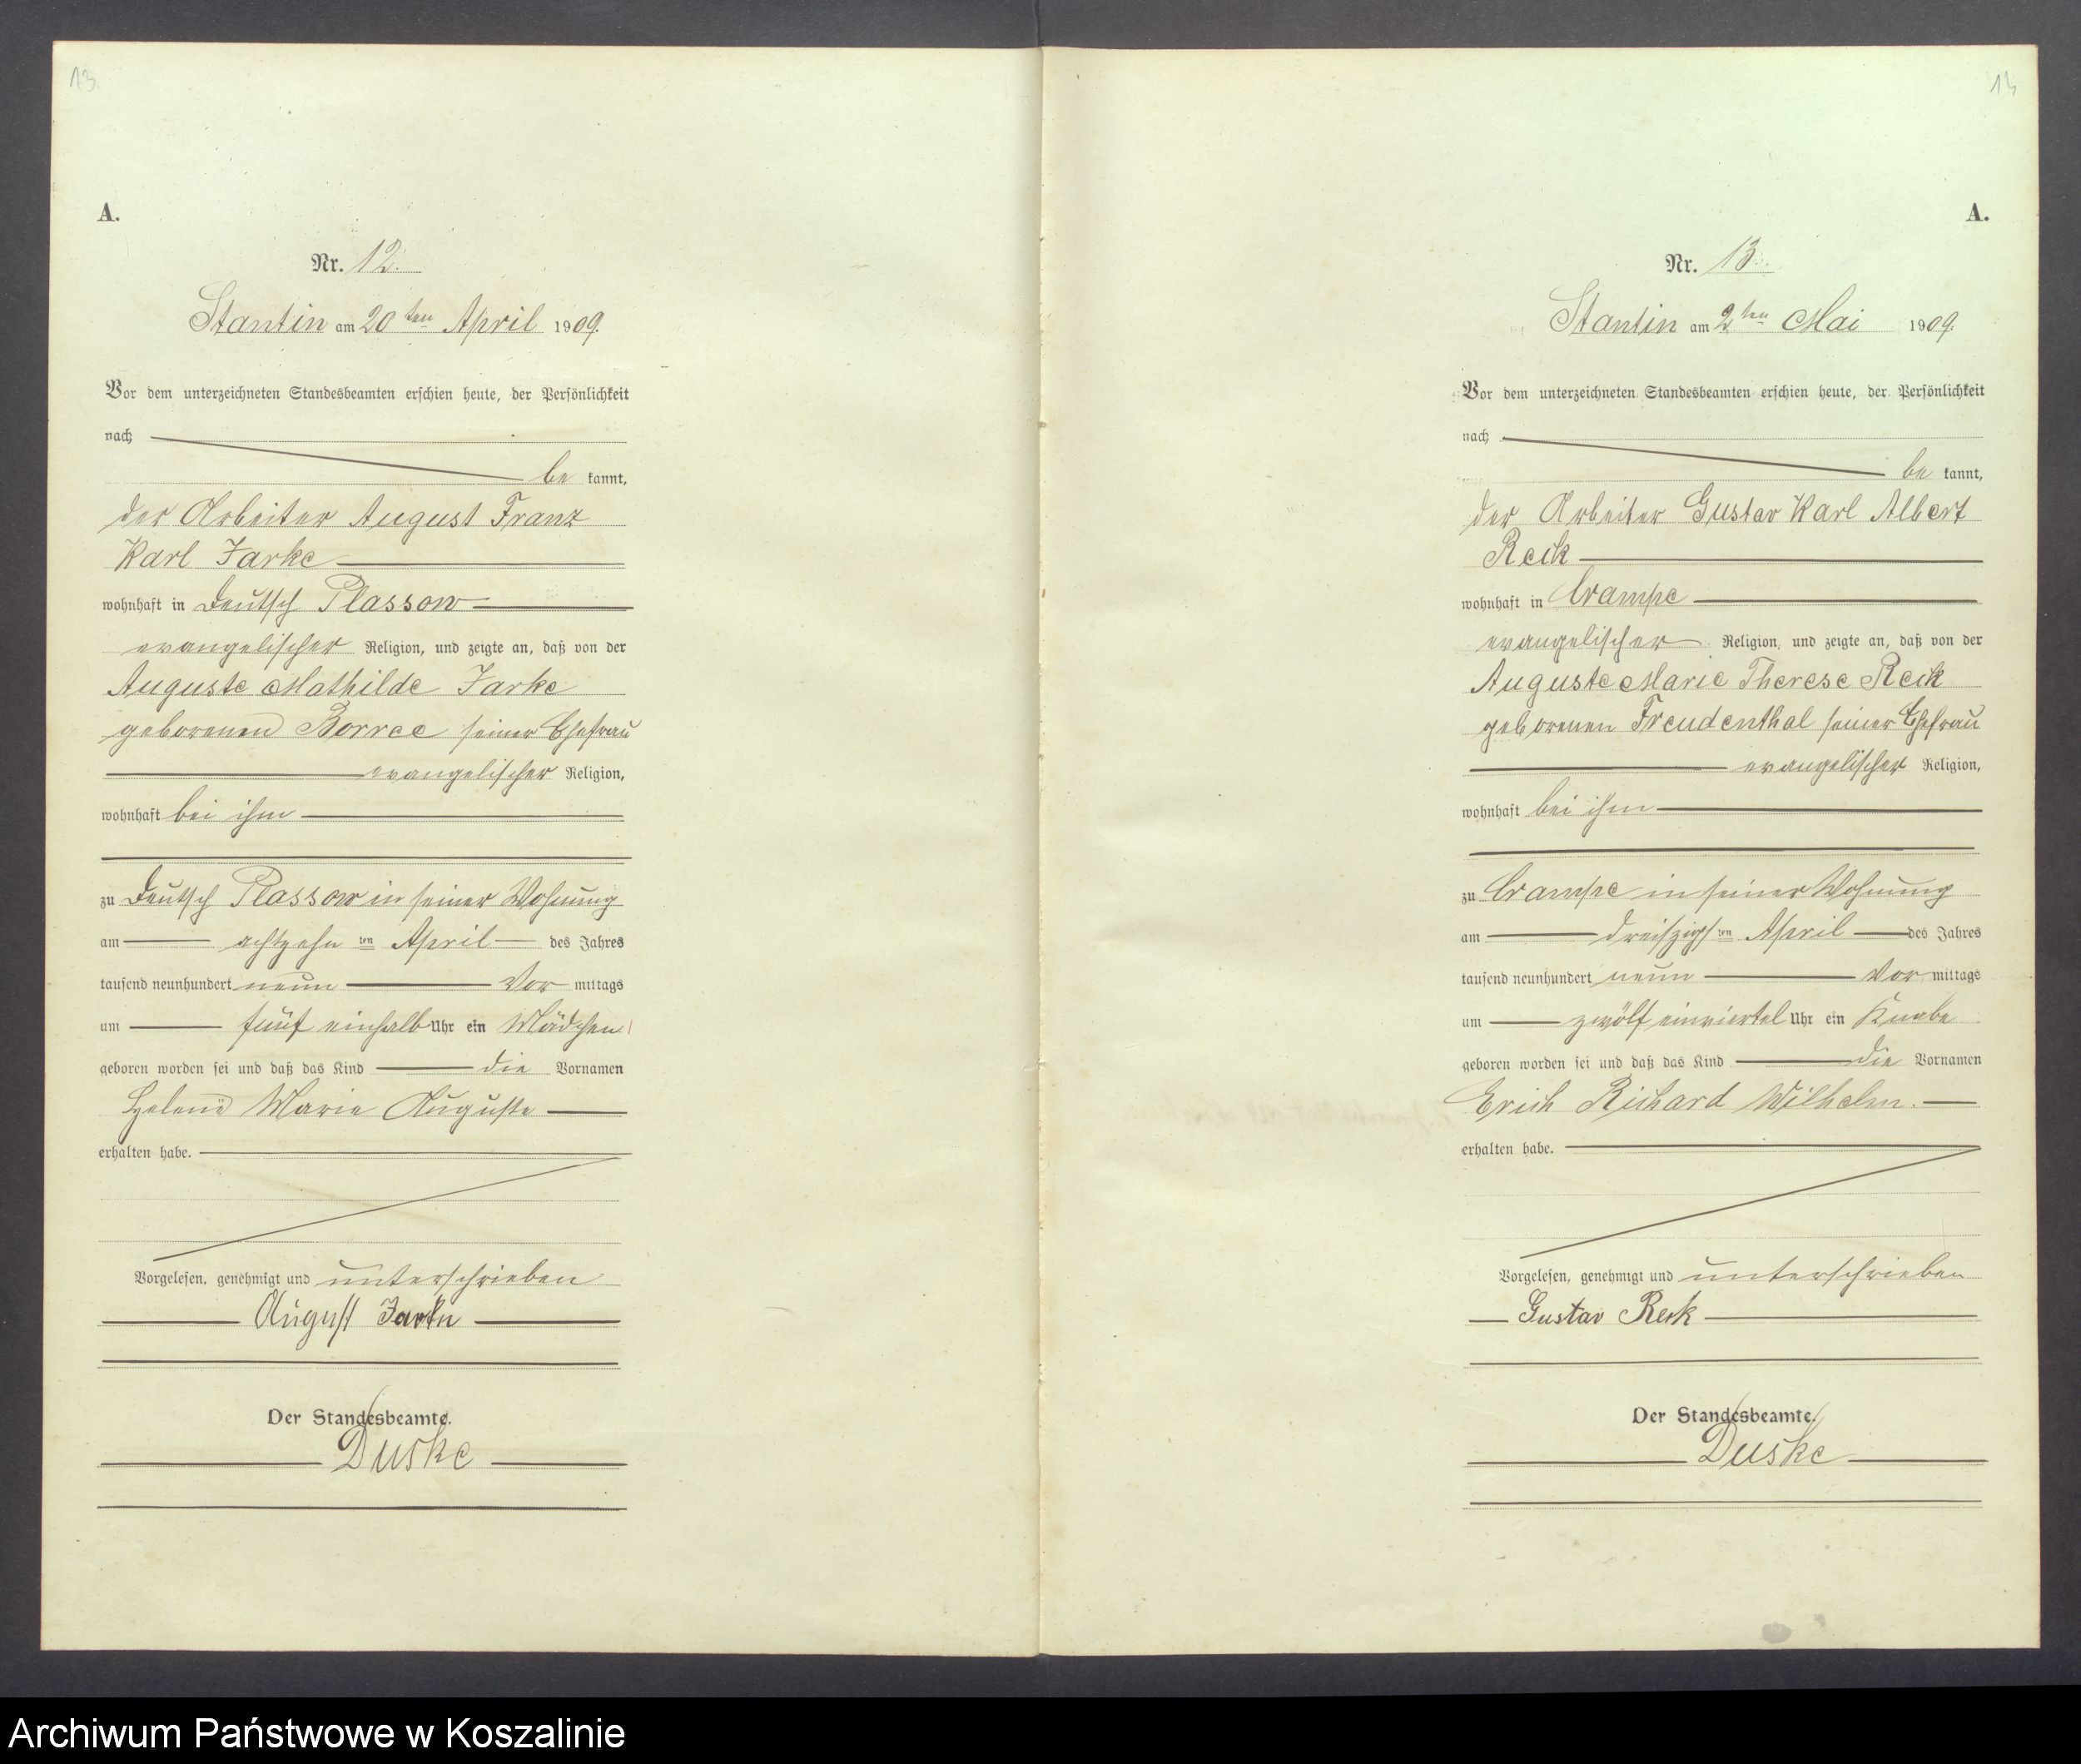 13.
A.
Nr. 12.
Stantin am 20ten April 1909.
Vor dem unterzeichneten Standesbeamten erschien heute, der Persönlichkeit
nach
be kannt,
der Arbeiter August Franz
Karl Jarke
wohnhaft in Deutsch Plassow
evangelischer Religion, und zeigte an, daß von der
Auguste Mathilde Jarke
geborenen Borree seiner Ehefrau
evangelischer Religion,
wohnhaft bei ihm
zu Deutsch Plassow in seiner Wohnung
am achtzehn ten April des Jahres
tausend neunhundert neun Vor mittags
um fünf einhalb Uhr ein Mädchen
geboren worden sei und daß das Kind die Vornamen
Helene Marie Auguste
erhalten habe.
Vorgelesen, genehmigt und unterschrieben
August Jarke
Der Standesbeamte.
Duske
14
A.
Nr. 13.
Stantin am 2ten Mai 1909.
Vor dem unterzeichneten Standesbeamten erschien heute, der Persönlichkeit
nach
be kannt,
der Arbeiter Gustav Karl Albert
Reck
wohnhaft in Crampe
evangelischer Religion, und zeigte an, daß von der
Auguste Marie Therese Reck
geborenen Freudenthal seiner Ehefrau
evangelischer Religion,
wohnhaft bei ihm
zu Crampe in seiner Wohnung
am dreißigsten April des Jahres
tausend neunhundert neun Vor mittags
um zwölf einviertel Uhr ein Knabe
geboren worden sei und daß das Kind die Vornamen
Erich Richard Wilhelm.
erhalten habe.
Vorgelesen, genehmigt und unterschrieben
Gustav Reck
Der Standesbeamte.
Duske
Archiwum Państwowe w Koszalinie